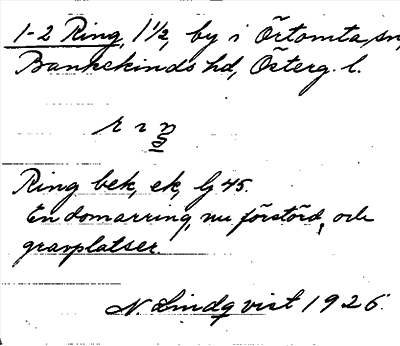 1-2 Ring, 1 1/2, by i Örtomta sn,
Bankekinds hd, Österg. l.
r ı n
Ring bek, ek, lg 45.
En domarring, nu förstörd, och
gravplatser.
N. Lindqvist 1926.